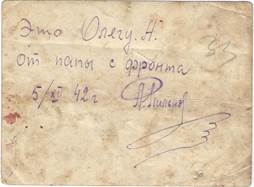 Это Олегу. Н.
от папы с фронта
5/XI 42 г
33